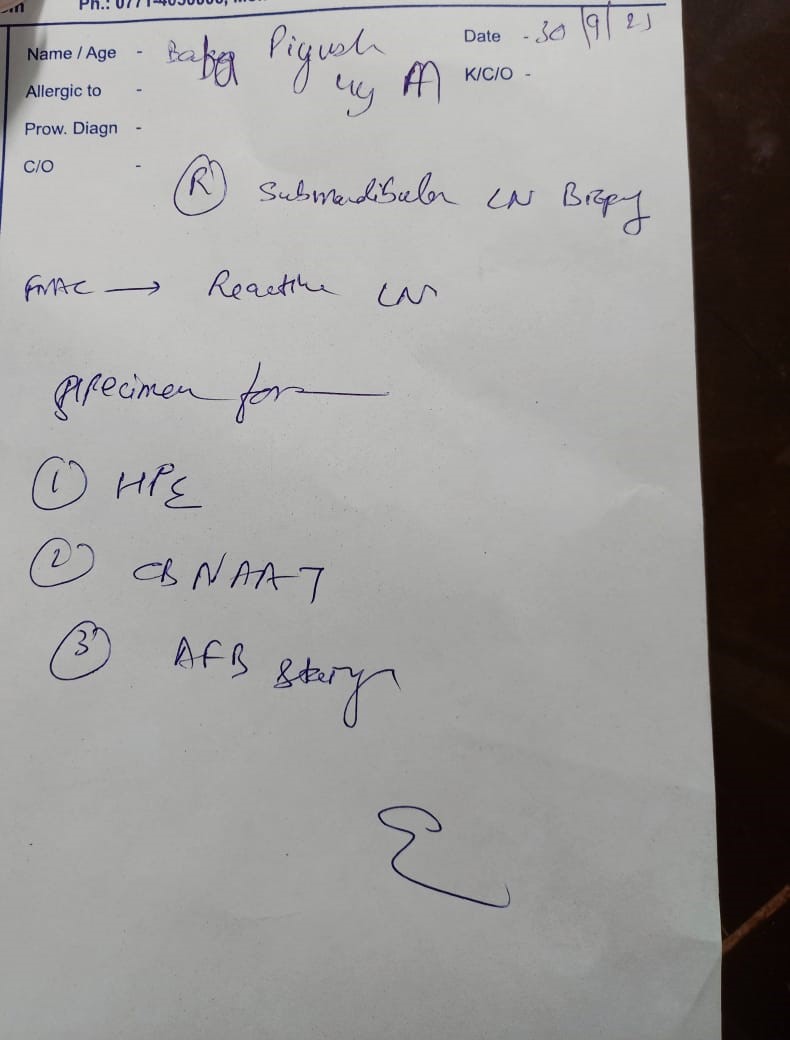 Ph.: 0771-4030000,
Name / Age - Baby Piyush Date - 30/9/21
4y M K/C/O -
Allergic to -
Prow. Diagn -
C/O -
(R) Submandibular LN Biopsy
FNAC → Reactive LN
specimen for
(1) HPE
(2) CBNAAT
(3) AFB